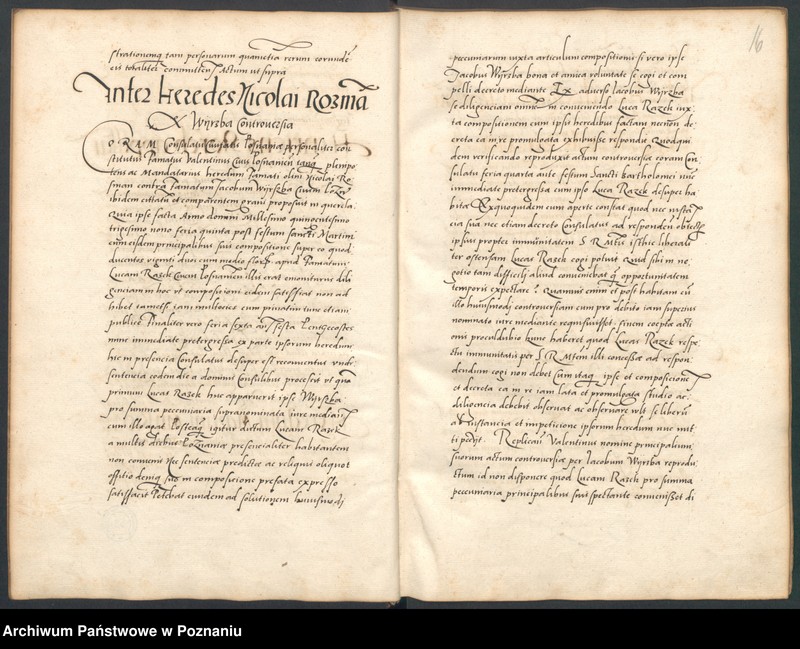 strationemq tam personarum quam etia rerum eorunde
eis totaliter committen Actum ut supra
Inter Heredes Nicolai Rozma
X Wyrzba Controversia
CORAM Consulatu Civitatis Posnaniae personaliter con
stitutus Famatus Valentinus Civis Posnanien tanq plenipo
tens ac Mandatarius heredum Famati olim Nicolai Ro
sman contra Famatum Jacobum Wyrszba Civem
ibidem citatu et comparentem gravi proposuit in querela
Quia ipse facta Anno domini Millesimo quincentesimo
trigesimo nono feria quinta post festum sancti Martini
cum eisdem principalibus suis compositione super eo quod
ducentos viginti duos cum medio floren apud Famatum
Lucam Razek Civem Posnanien illis erat emoniturus dili
gentiam in hoc ut compositioni eidem satisfiat non ad
hibet tametsi iam multoties cum privatim tunc etiam
publice Finaliter vero feria sexta festa Penthecostes
nunc immediate pretergressa ex parte ipsorum heredum
hic in presencia Consulatus desuper est reconventus unde
sentencia eodem die a dominis Consulibus processit ut qua
primum Lucas Razek huc apparuerit ipse Wyrszba
pro summa pecuniaria supranominata iure median
cum illo agat Posteaq igitur dictum Lucam Razek
a multis diebus Posnaniae presencialiter habitantem
non convenit Nec sentenciae predictae ac reliquis aliquot
offitio deniq suo in compositione prefata expresso
satisfacit Petebat eundem ad solutionem huiusmodi
16
pecuniarum iuxta articulum compositionis si vero ipse
Jacobus Wyrzba bona et amica voluntate se cogi et com
pelli decreto mediante Ex adverso Jacobus Wyrzba
se diligenciam omne in conveniendo Luca Razek iux
ta compositionem cum ipsis heredibus factam necnon de
creta ea in re promulgata exhibuisse respondit Quodqui
dem verificando reproduxit actum controversiae coram Con
sulatu feria quarta ante festum Sancti Bartholomei nunc
immediate pretergressa cum ipso Luca Razek desuper ha
bitae Ex quoquidem cum aperte constat quod nec instan
cia sua nec etiam decreto Consulatus ad respondendu obiectis
ipsius propter immunitatem S R Mtis isthic liberali
ter ostensam Lucas Razek cogi potuit Quid sibi in ne
gotio tam difficili aliud conveniebat q opportunitatem
temporis expectare? Quamvis enim et post habitam cu
illo huiusmodi controversiam cum pro debito iam superius
nominato iure mediante requisivisset. finem coepta acti
onis proculdubio hunc haberet quod Lucas Razek respe
ctu immunitatis per S R Mtem illi concessae ad respon
dendum cogi non debet Cum itaq ipse et compositione
et decreta ea in re iam lata et promulgata studio ac
diligencia debebit observat ac observare vult se liberu
ab instancia et impetitione ipsorum heredum nunc mit
ti petyt. Replicavit Valentinus nomine principalium
suorum actum controversiae per Jacobum Wyrzba reprodu
ctum id non disponere quod Lucam Razek pro summa
pecuniaria principalibus suis spectante convenisset di
Archiwum Państwowe w Poznaniu